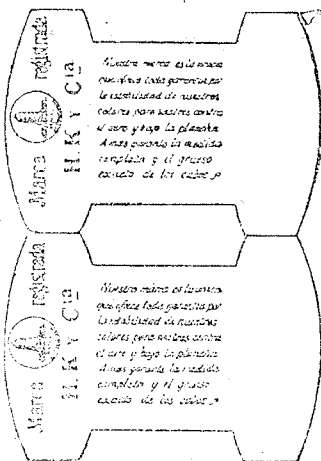 Marca registrada
H. K y Cia
Nuestra marca es la unica
que ofrece toda garantia por
la estabilidad de nuestros
colores para sastres contra
el aire y bajo la plancha
Amas garantia la medida
completa y el grueso
exacto de los cabos
Marca registrada
H. K y Cia
Nuestra marca es la unica
que ofrece toda garantia por
la estabilidad de nuestros
colores para sastres contra
el aire y bajo la plancha
Amas garantia la medida
completa y el grueso
exacto de los cabos